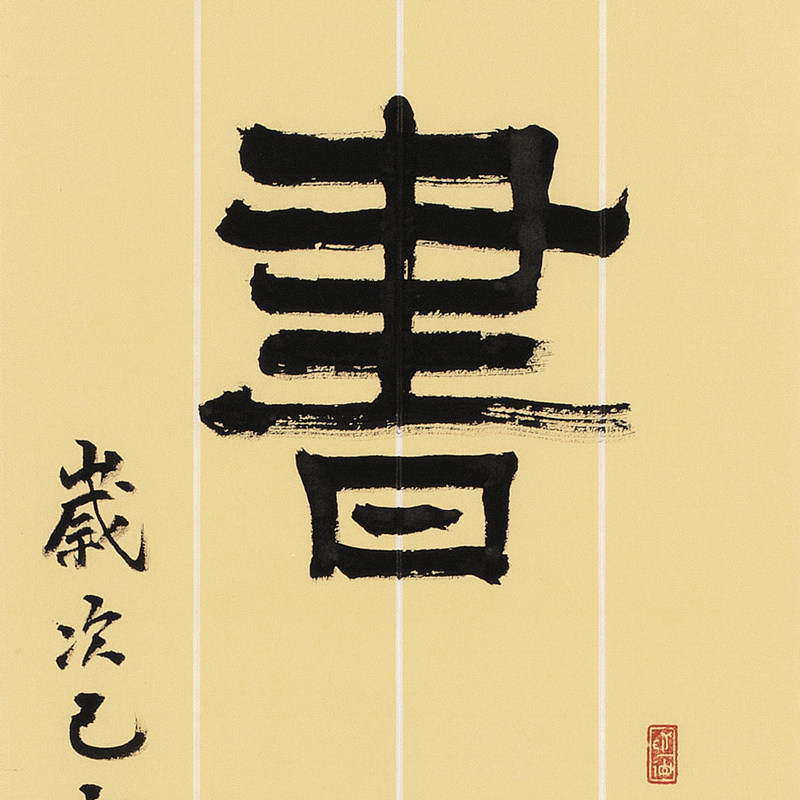 書
歲次己